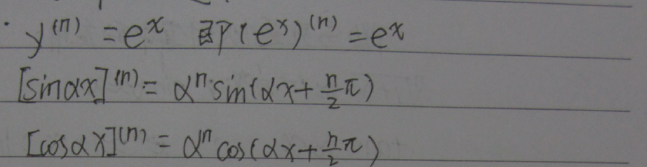 y⁽ⁿ⁾ = eˣ 即(eˣ)⁽ⁿ⁾ = eˣ
[sinαx]⁽ⁿ⁾ = αⁿ sin(αx + n/2 π)
[cosαx]⁽ⁿ⁾ = αⁿ cos(αx + n/2 π)